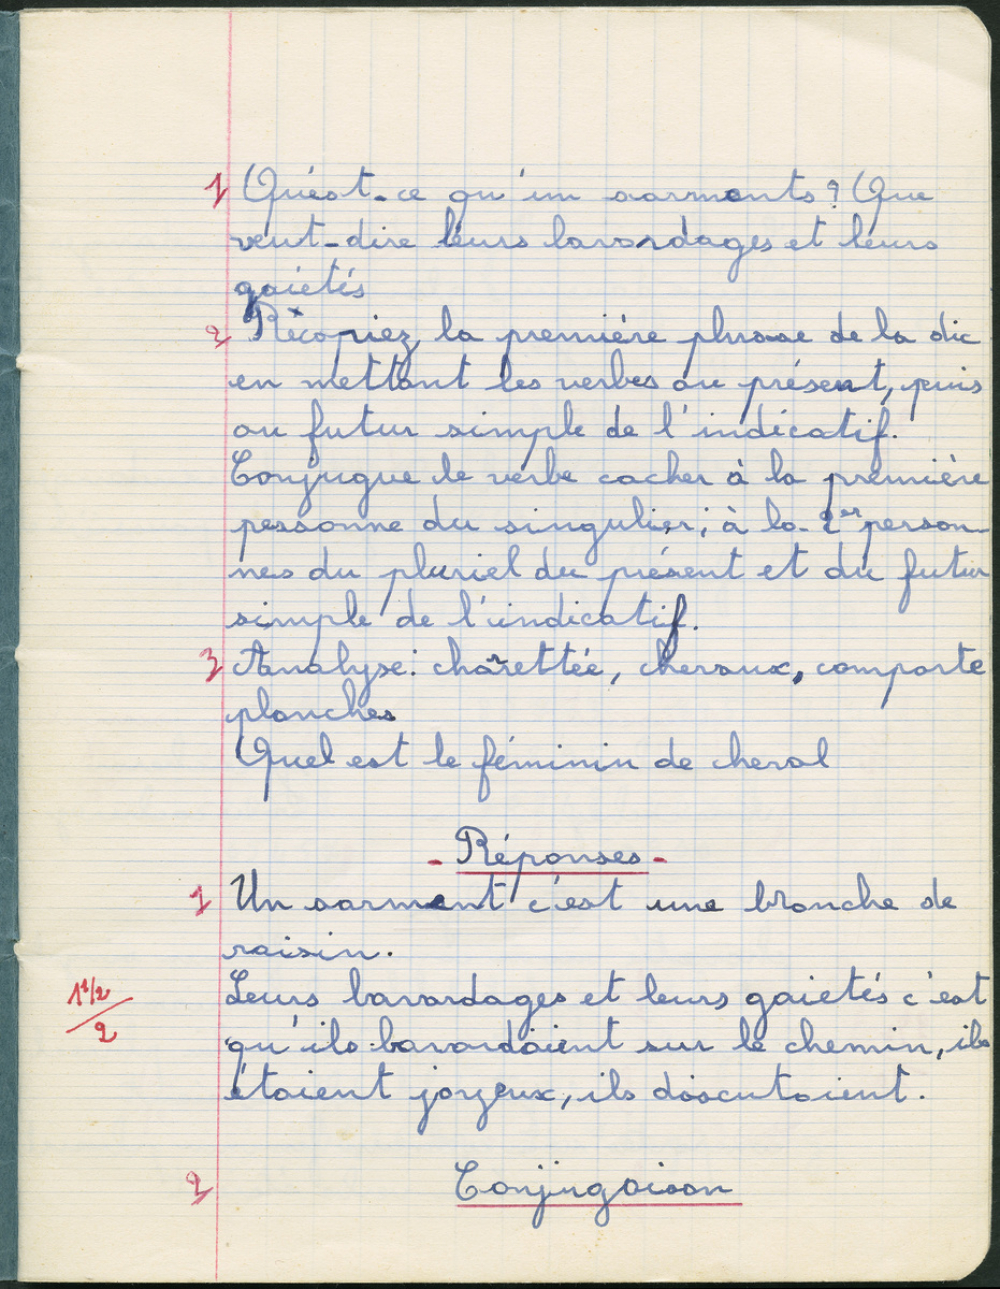 1 Qu'est-ce qu'un sarments ? Que
veut-dire leurs bavardages et leurs
gaietés
2 Récopiez la première phrase de la dic
en mettant les verbes au présent, puis
au futur simple de l'indicatif.
Conjugue le verbe cacher à la première
personne du singulier; à la 2er person-
nes du pluriel du présent et du futur
simple de l'indicatif.
3 Analyse: charettée, chevaux, comporte
planches
Quel est le féminin de cheval
- Réponses -
1 Un sarment c'est une branche de
raisin.
Leurs bavardages et leurs gaietés c'est
1 1/2 / 2
qu'ils bavardaient sur le chemin, ils
étaient joyeux, ils discutaient.
2 Conjugaison